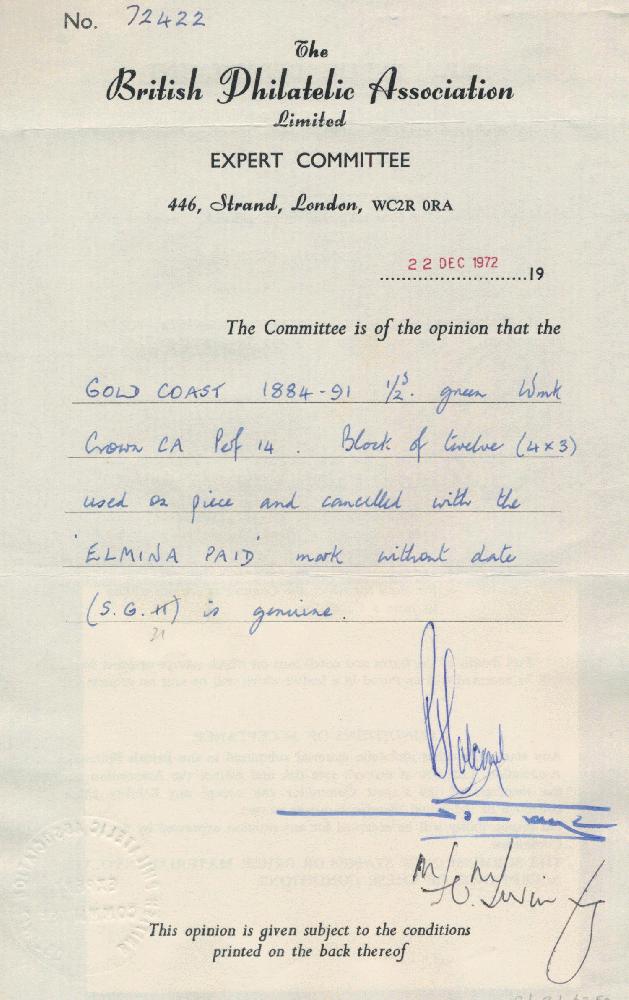 No. 72422
The
British Philatelic Association
Limited
EXPERT COMMITTEE
446, Strand, London, WC2R 0RA
22 DEC 1972
19
The Committee is of the opinion that the
GOLD COAST 1884-91 ½d. green Wmk
Crown CA Perf 14. Block of twelve (4×3)
used on piece and cancelled with the
'ELMINA PAID' mark without date
(S.G. 11) is genuine.
This opinion is given subject to the conditions
printed on the back thereof